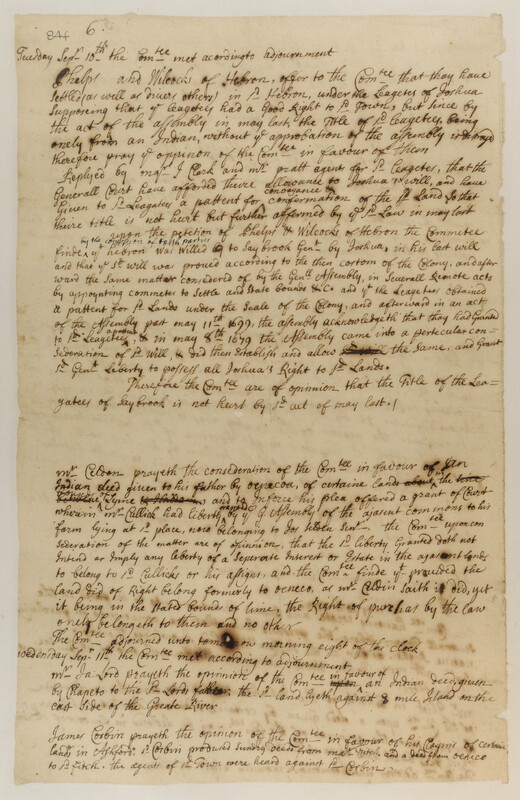 844 6.
Tuesday Sepr 10th the Comtee met acording to adjournment
Phelps and Wilcocks of Hebron, offer to the Comtee that they have
settled (as well as divers others) in sd Hebron, under the Leagetes of Joshua
supposing that ye leagetees had a Good Right to sd Town, but since by
the act of the assembly in may last, the Title of sd leagetes, being
onely from an Indian, without ye approbation of the assembly is voyd
therefore pray ye oppinon of the Comtee in favour of them
Replyed by majr J Clark and mr pratt agent for sd Leagetes, that the
Generall Court have afforded theire allowance to Joshua's will, and have
Given to sd Leagates a pattent for conveyance & confermation of the sd Land so that
theire title is not hurt but further affirmed by ye sd Law in may last
upon the petetion of Phelps & Wilcocks of Hebron the Commetee
by the confession of both parties
finde ye hebron was willed to Saybrook Gentn by Joshua, in his last will
and that ye sd will was proved according to the then costom of the Colony, and after
ward the same matter considered of by the Genll Assembly, in severall Remote acts
by appoynting commetes to settle and state bounds &c and ye the Leagetees obtained
a pattent for sd Lands under the seale of the Colony, and afterward in an act
of the Assembly past may 11th 1699, the assembly acknowledgeth that they had Granted
to sd Leagetees, & in may 8th 1679 the Assembly came into a perticular con-
sideration of sd Will, & did then Establish and allow the same, and Grant
sd Gentn Liberty to possess all Joshua's Right to sd Lands.
Therefore the Comtee are of opinion that the Title of the Lea-
gatees of Saybrook is not heurt by sd act of may last.
mr prayeth the consideration of the Comtee in favour of an
Indian deed given to his father by of certaine lands
and to inforce his plea offered a grant of Court
wherein mr Cullick had liberty granted by ye G Assembly of the ajasent commons to his
farm lying at sd place, now belonging to the Comtee upon con
sideration of the matter are of opinion, that the sd liberty Granted doth not
Intend or Imply any liberty of a Seperate Interest or Estate in the ajasent lands
to belong to sd Cullicks or his assignes, and the Comtee finde yt provided the
land did of Right belong formerly to oeneco, as mr saith it did, yet
it being in the stated bounds of lime, the Right of purchas by the law
onely belongeth to them and no other
The Comtee adjourned into tomorrow morning eight of the clock
wedensday Sepr 11th the Comtee met according to adjournment
mr Lord prayeth the opinion of the Comtee in favour of an Indian deed, given
by to the sd Lords father. the sd land lyeth against mile Island on the
east side of the Greate River
James Corbin prayeth the opinion of the Comtee in favour of his Clayms of certain
lands in Ashford. sd Corbin produced sundry deeds from majr Fitch. and a deed from oeneco
to sd Fitch. the agents of sd Town were heard against sd Corbin